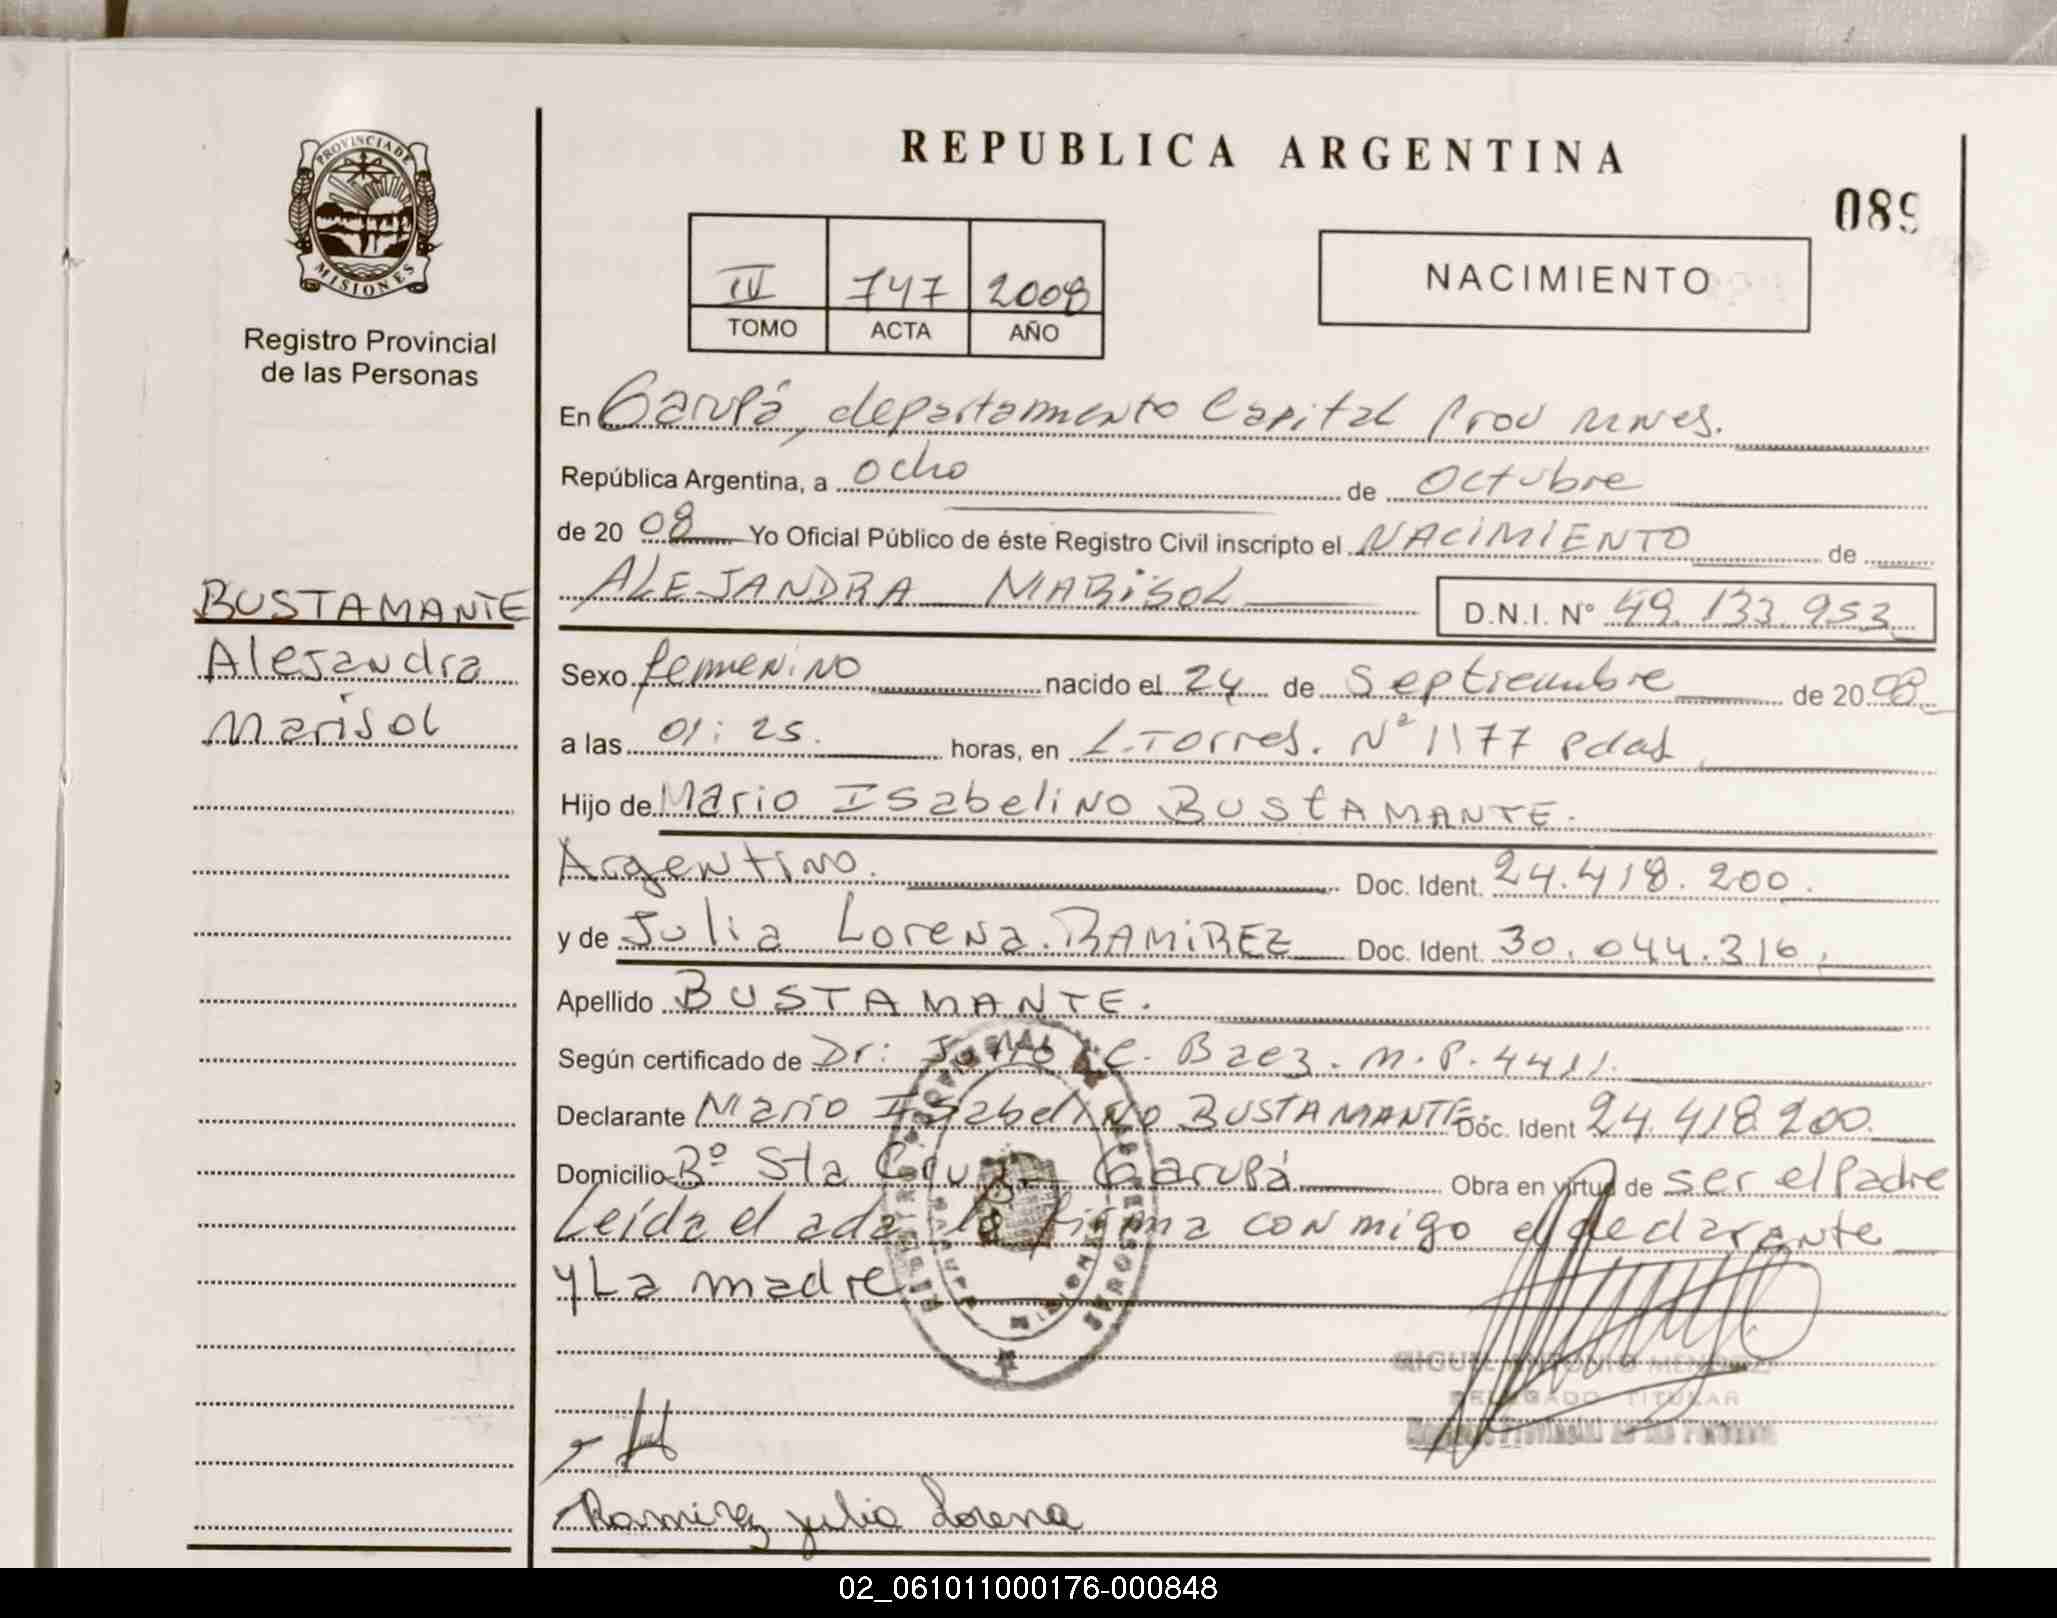 REPUBLICA ARGENTINA
089
PROVINCIA DE MISIONES
Registro Provincial
de las Personas
IV 747 2008
TOMO ACTA AÑO
NACIMIENTO
En Garupá, departamento Capital Prov Mnes.
República Argentina, a ocho de octubre
de 20 08 Yo Oficial Público de éste Registro Civil inscripto el NACIMIENTO de
ALEJANDRA MARISOL D.N.I. N° 49.133.953
BUSTAMANTE
Alejandra
Marisol
Sexo femenino nacido el 24 de septiembre de 20 08
a las 01:25. horas, en L. Torres. N° 1177 Pdas
Hijo de Mario Isabelino BUSTAMANTE.
Argentino. Doc. Ident. 24.418.200.
y de Julia Lorena RAMIREZ Doc. Ident. 30.044.316.
Apellido BUSTAMANTE.
Según certificado de Dr: Julio C. Baez. M.P. 4411.
Declarante Mario Isabelino BUSTAMANTE Doc. Ident 24.418.200.
Domicilio B° Sta Cruz Garupá Obra en virtud de ser el Padre
Leída el acta la firma conmigo el declarante
y La madre
MIGUEL ANTONIO MENDEZ
DELEGADO TITULAR
Registro Provincial de las Personas
Ramirez julia Lorena
02_061011000176-000848